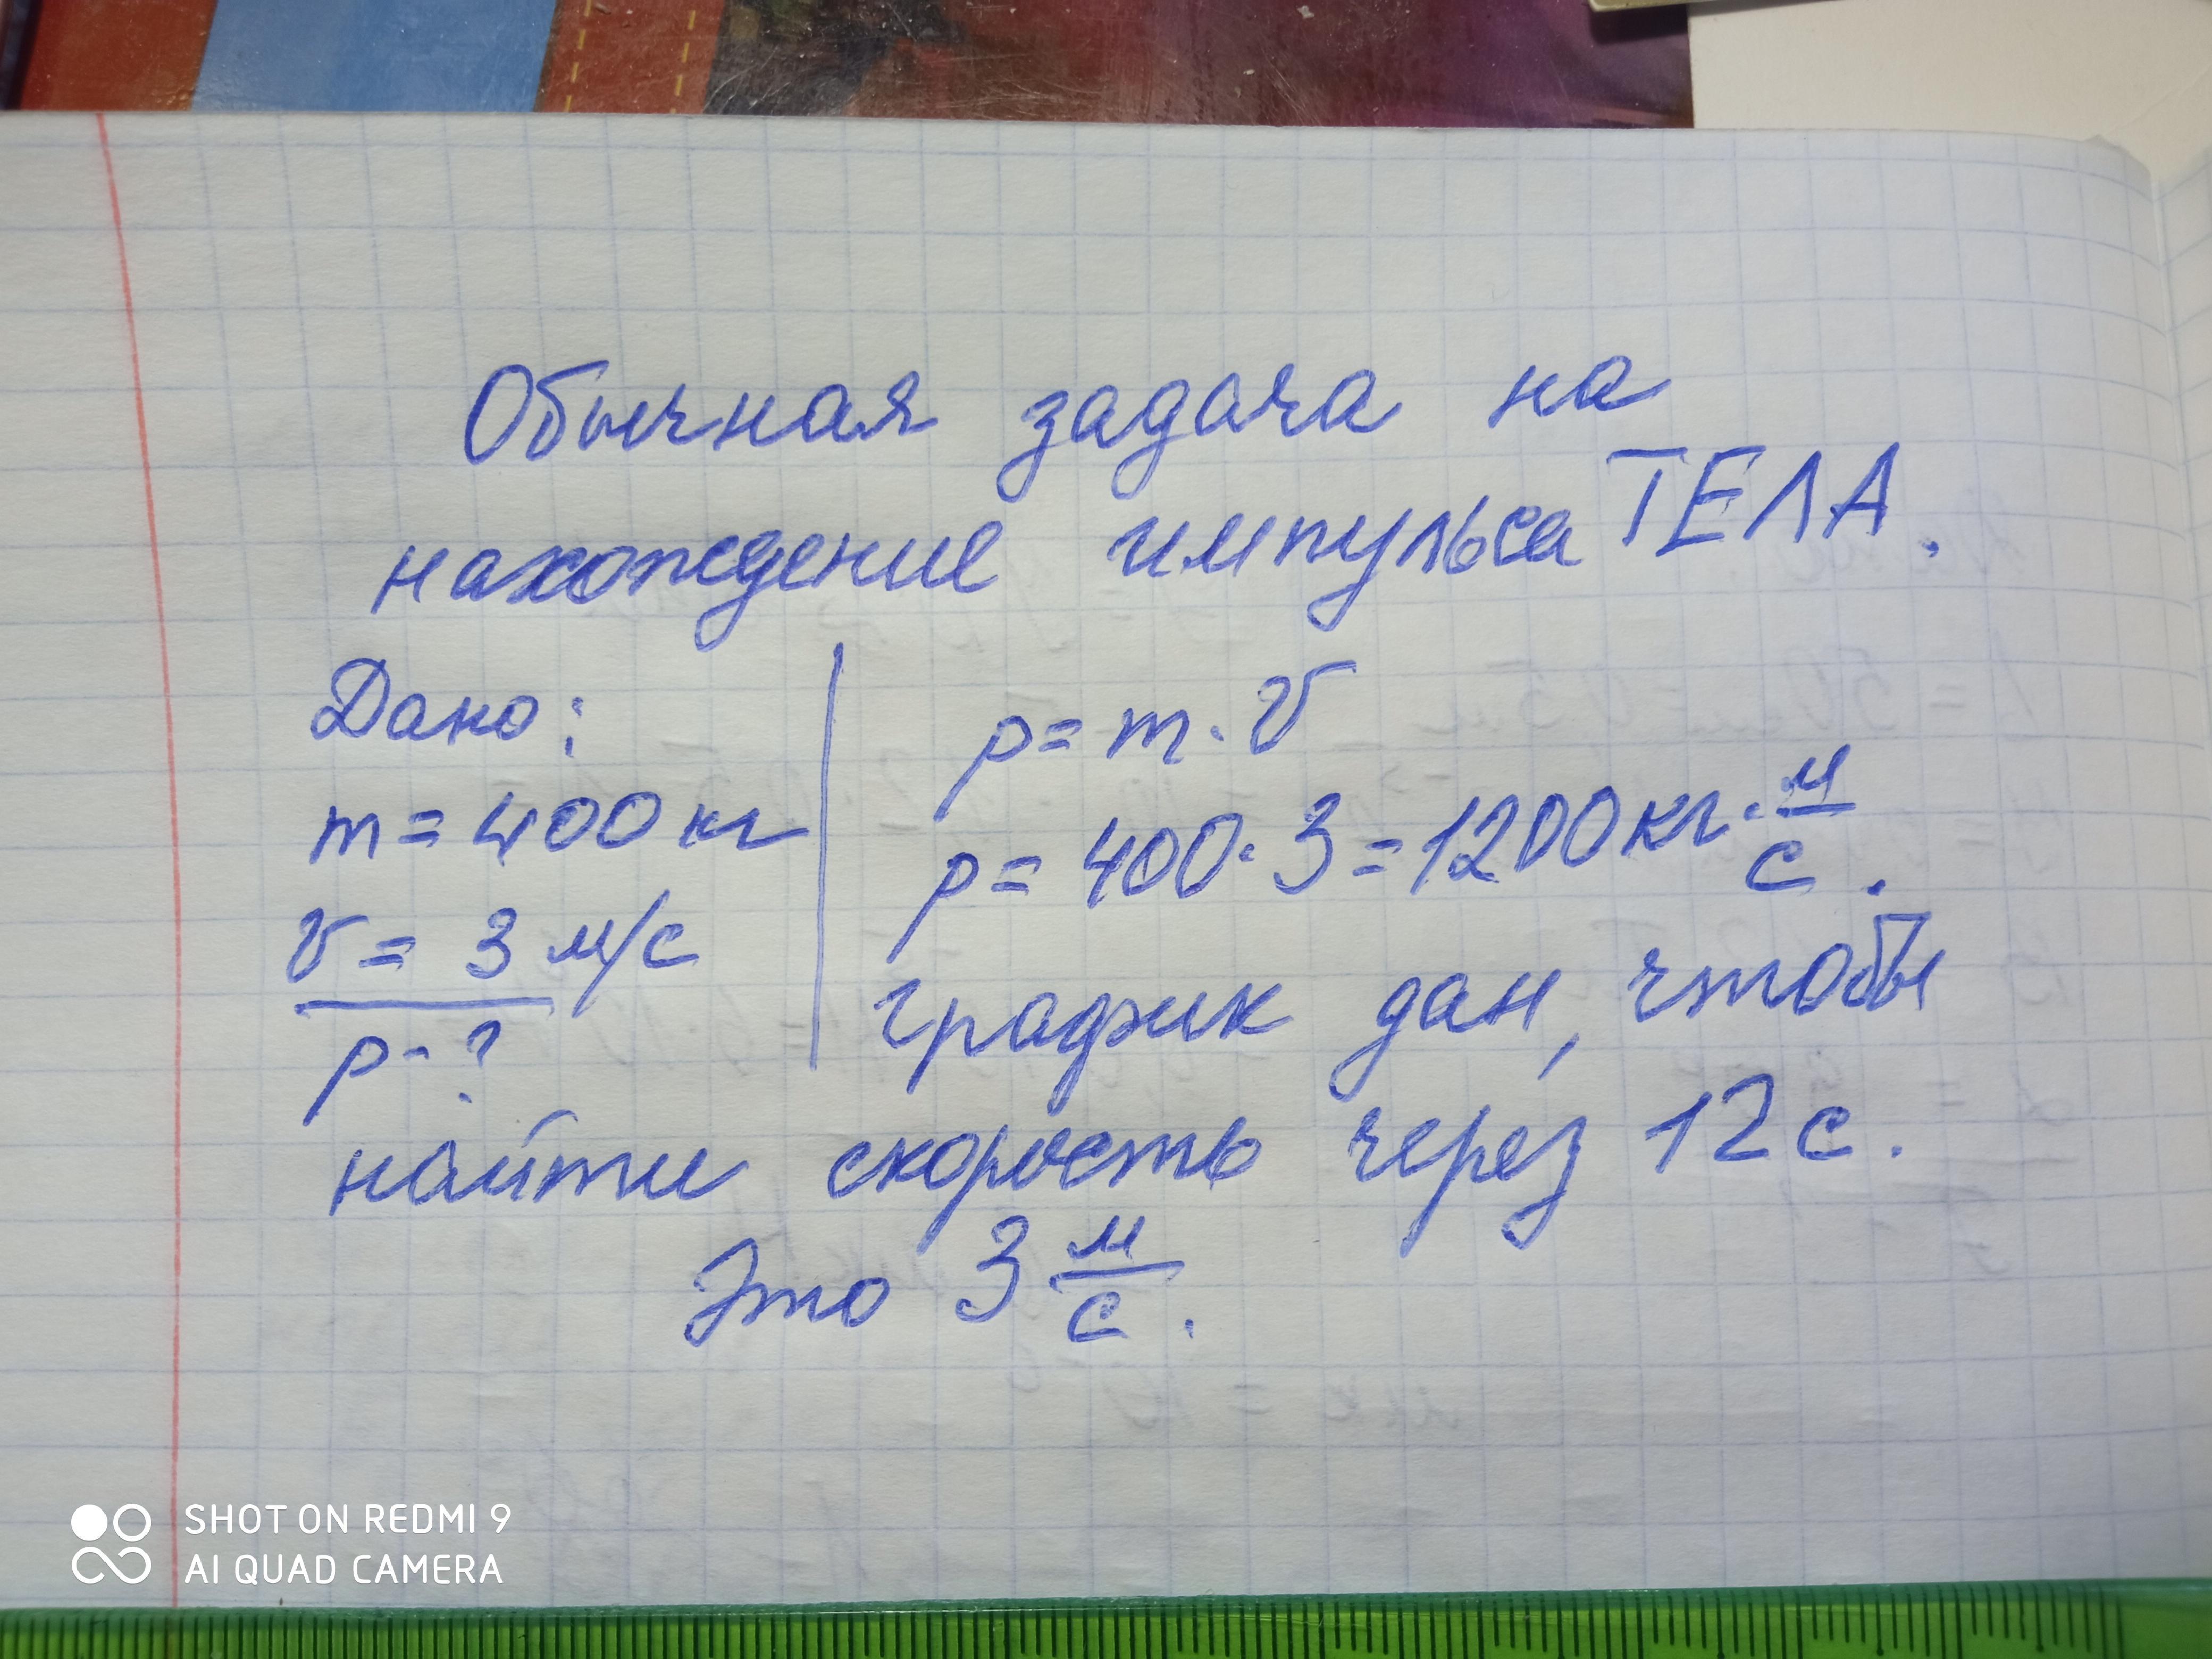 Обычная задача на
нахождение импульса ТЕЛА.
Дано:
m = 400 кг
v = 3 м/с
p - ?
p = m · v
p = 400 · 3 = 1200 кг · м/с.
график дан, чтобы
найти скорость через 12 с.
Это 3 м/с.
SHOT ON REDMI 9
AI QUAD CAMERA